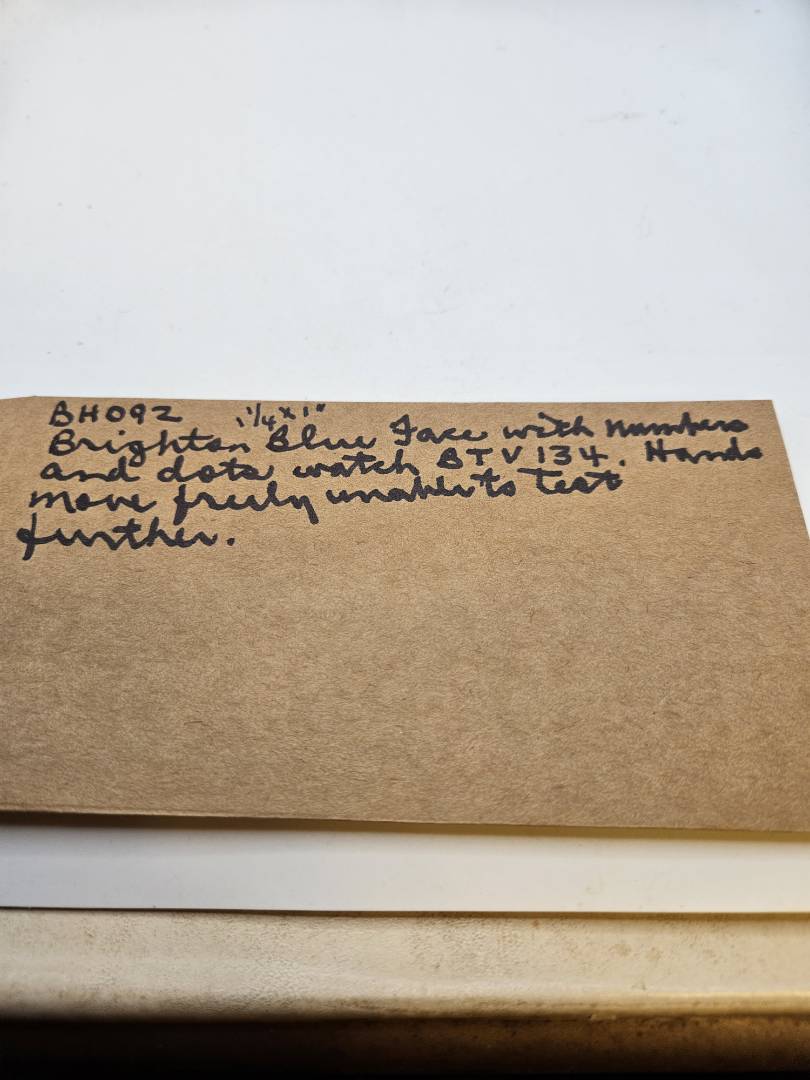 BH092 1 1/4 x 1"
Brighton Blue Face with numbers
and dots watch BTV134. Hands
move freely unable to Test
further.